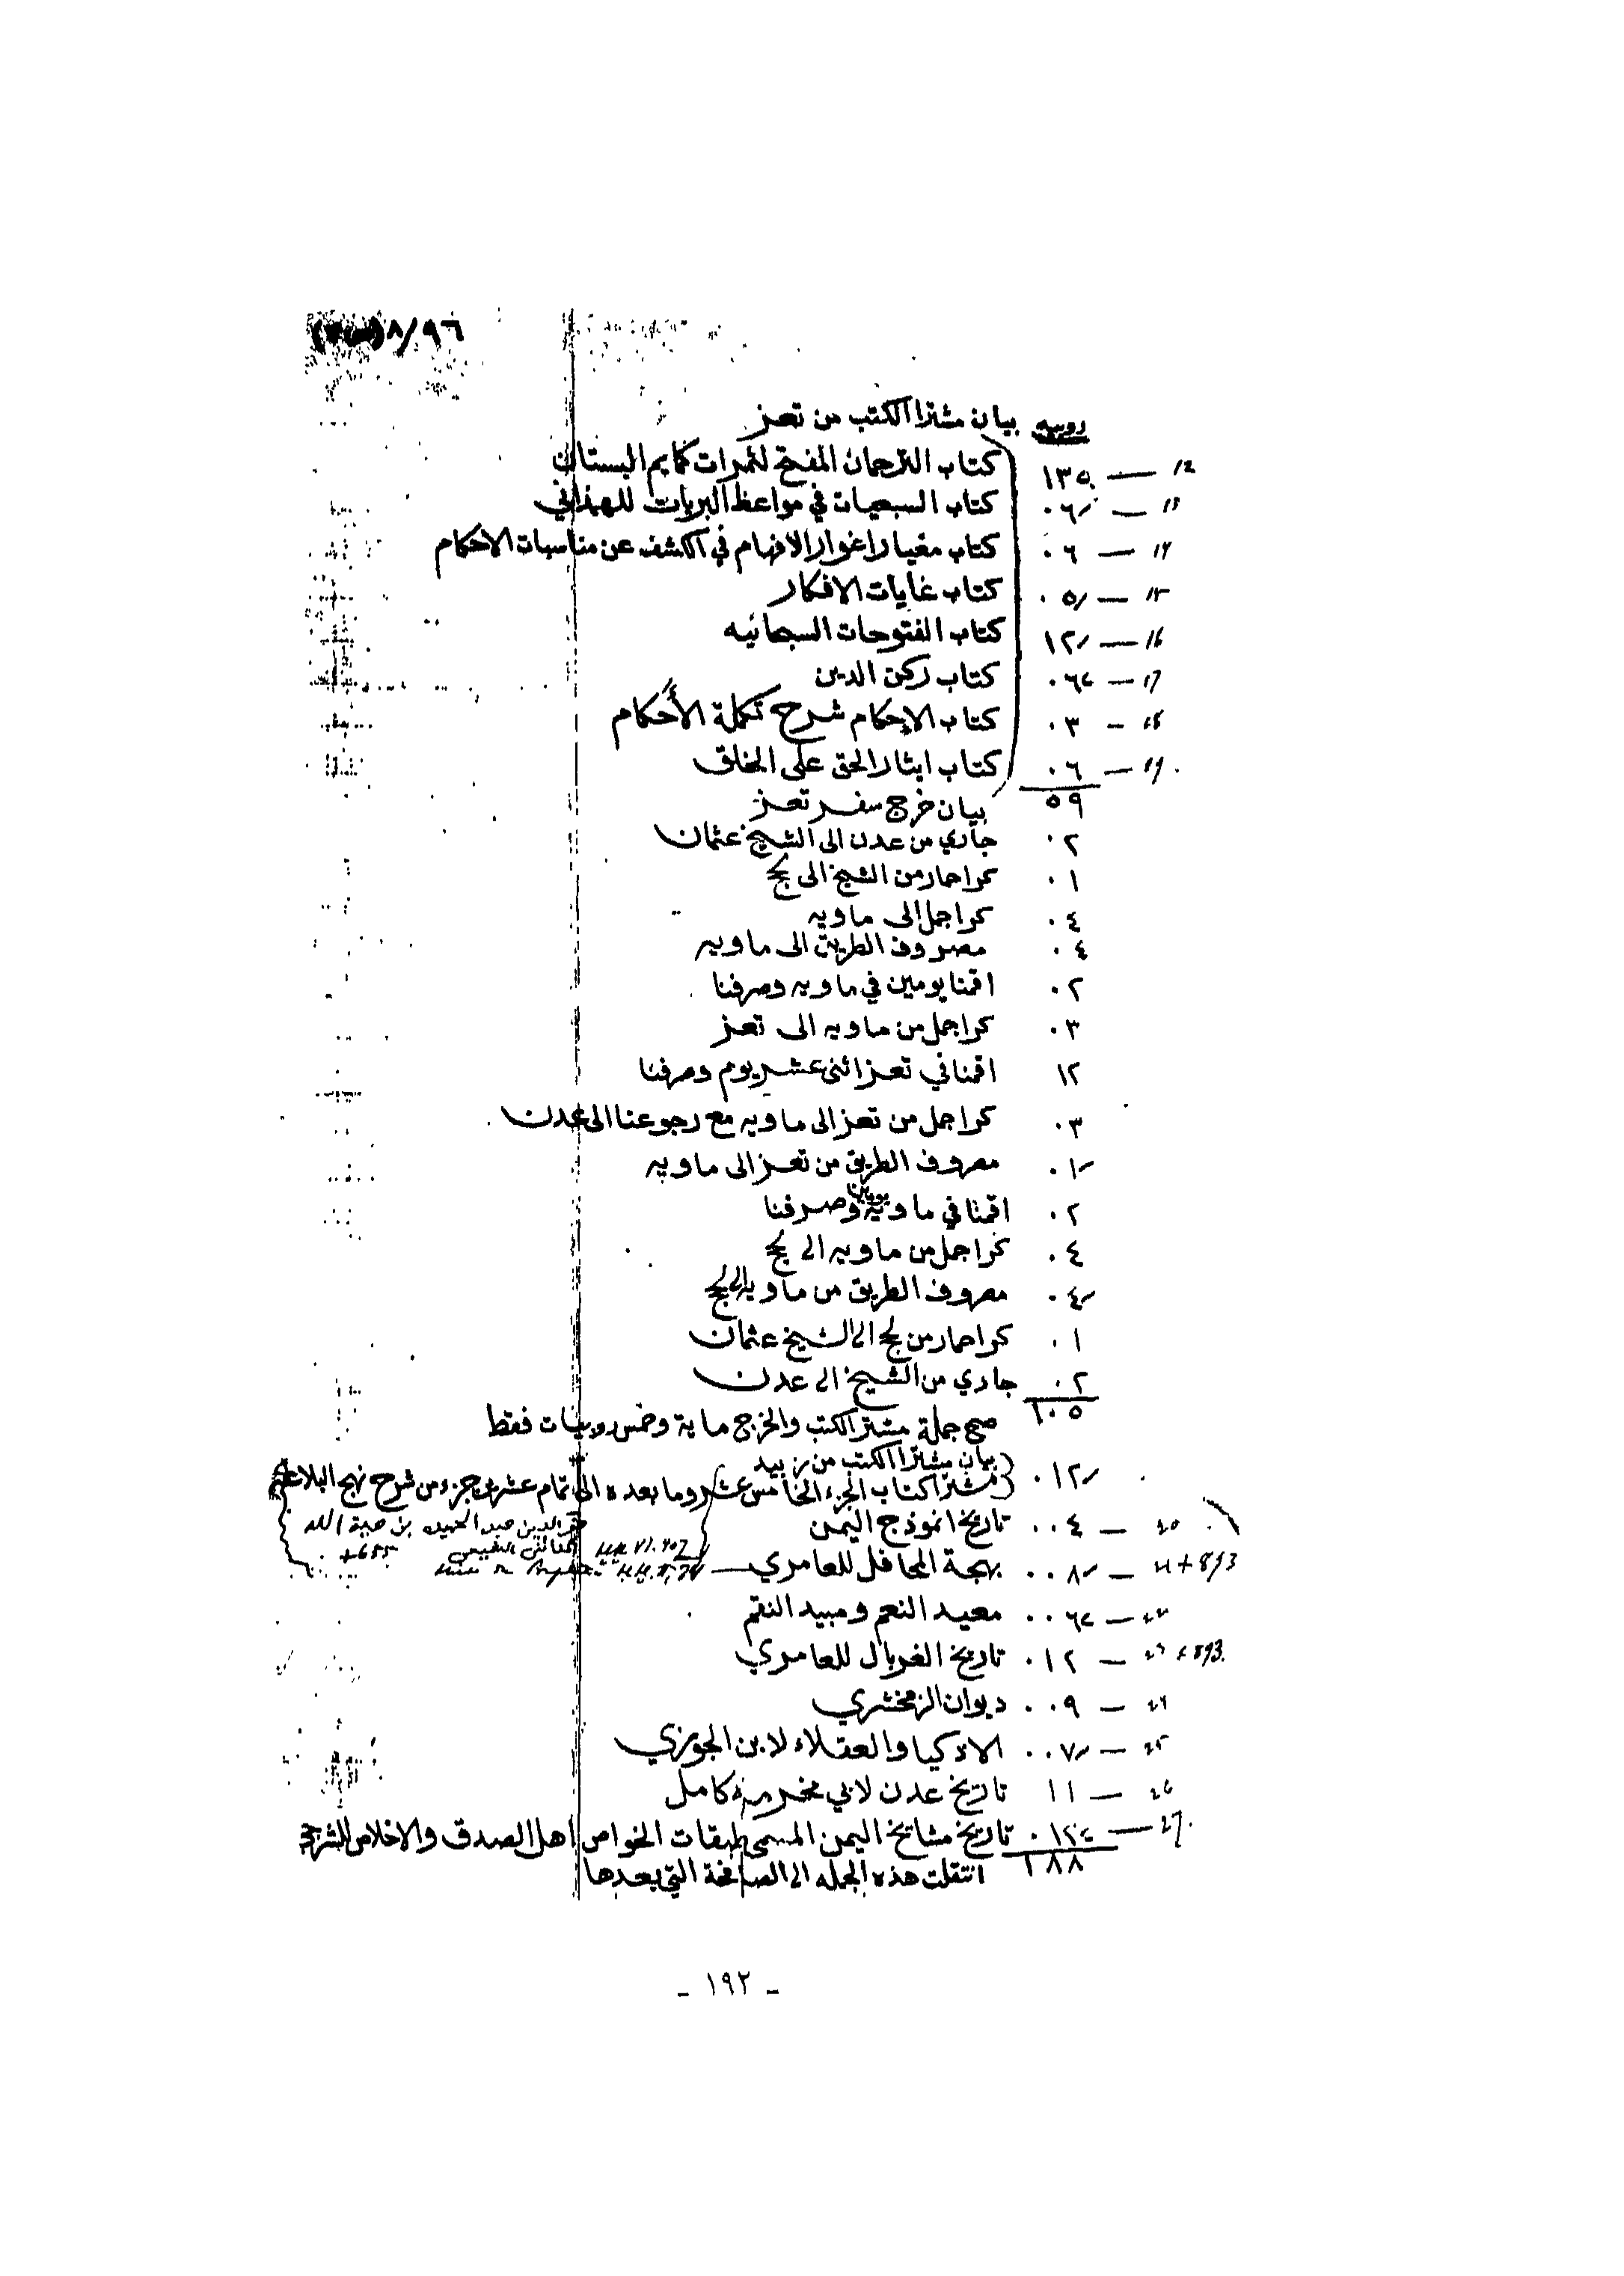 ٨/٩٦
روبيه بيان مشترا الكتب من تعز
١٣٥ كتاب الترجمان المفتح لثمرات كمايم البستان
٠٦/ كتاب السبعيات في مواعظ البريات للهمذاني
٠٦ كتاب معيار اغوار الافهام في الكشف عن مناسبات الاحكام
٠٥/ كتاب غايات الافكار
١٢/ كتاب الفتوحات السبحانيه
كتاب ركن الدين
٠٣ كتاب الإحكام شرح تكملة الأحكام
٠٦ كتاب ايثار الحق على الخلق
٥٩
بيان خرج سفر تعز
٠٢ جاري من عدن الى الشيخ عثمان
٠١ كرا حمار من الشيخ الى لحج
٠٤ كرا جمل إلى ماويه
٠٤ مصروف الطريق الى ماويه
٠٢ اقمنا يومين في ماويه وصرفنا
٠٣ كرا جمل من ماويه الى تعز
١٢ اقمنا في تعز اثنى عشر يوم وصرفنا
٠٣ كرا جمل من تعز الى ماويه مع رجوعنا الى عدن
٠١/ مصروف الطريق من تعز الى ماويه
٠٢ اقمنا في ماويه يومين وصرفنا
٠٤ كرا جمل من ماويه الى لحج
٠٤/ مصروف الطريق من ماويه الى لحج
٠١ كرا حمار من لحج الى الشيخ عثمان
٠٢ جاري من الشيخ الى عدن
١٠٥
صح جملة مشترا الكتب والخرج ماية وخمس روبيات فقط
بيان مشترا الكتب من زبيد
٠١٢/ مشترا كتاب الجزء الخامس عشر وما بعده الى تمام عشرين جزء من شرح نهج البلاغه
عبد الحميد بن هبة الله
+655
٠٠٤ تاريخ انموذج اليمن
٠٠٨/ بهجة المحافل للعامري
+893
معيد النعم ومبيد النقم
٠١٢ تاريخ الغربال للعامري
+893
٠٠٩ ديوان الزمخشري
٠٠٧/ الاذكيا والعقلاء لابن الجوزي
١١ تاريخ عدن لابي مخرمة كامل
تاريخ مشايخ اليمن المسمى طبقات الخواص اهل الصدق والاخلاص للشرجي
١٨٨
انتقلت هذه الجمله الى الصافحة التي بعدها
- ١٩٢ -